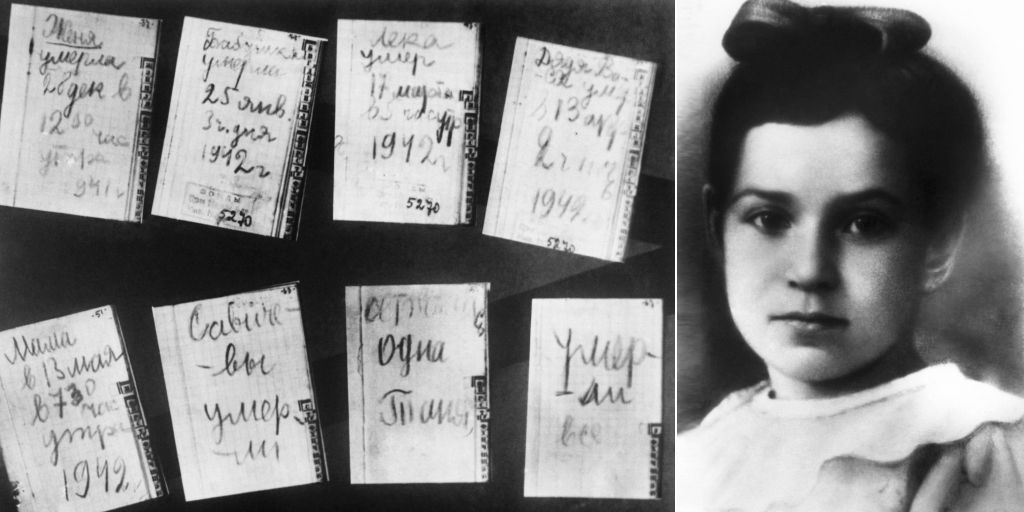 Женя
умерла
28 дек в
12 00
час
утра
941 г
Бабушка
умерла
25 янв.
3ч. дня
1942 г
5270
Лека
умер
17 марта
в 5 часутр
1942 г
5270
Дядя Ва-
ся уме
в 13 апр
2ч ночь
1942 г
5270
Мама
в 13 мая
в 7 30
час
утра
1942
Савиче-
-вы
умер
-ли
одна
Таня
Умер-
-ли
все